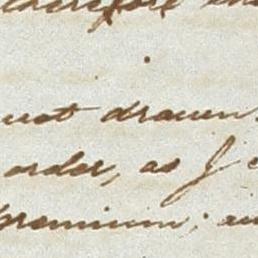 therefore
not drawn
order, as I
premium;